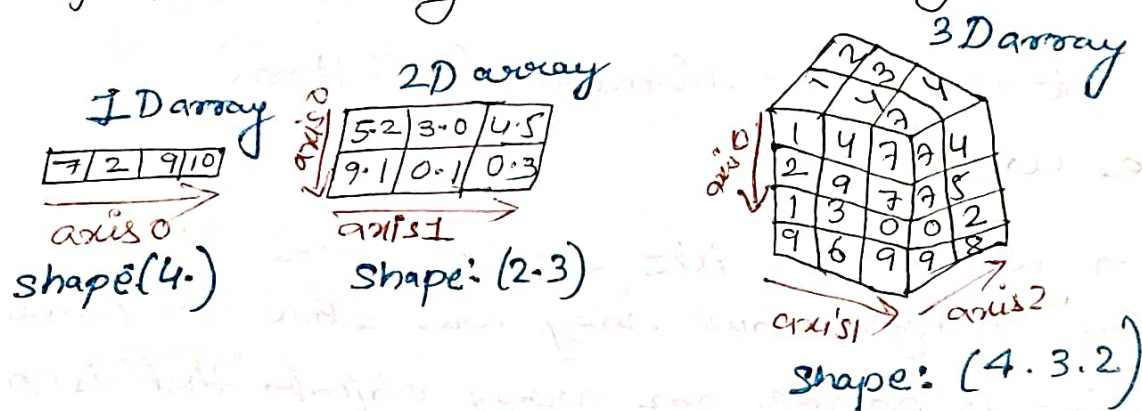 1D array
7 2 9 10
axis 0
shape:(4.)
2D array
axis 0
5.2 3.0 4.5
9.1 0.1 0.3
axis1
Shape: (2.3)
3D array
2 3 4
1 4 7
axis 0
1 4 7 7 4
2 9 7 7 5
1 3 0 0 2
9 6 9 9 8
axis1
axis2
Shape: (4.3.2)